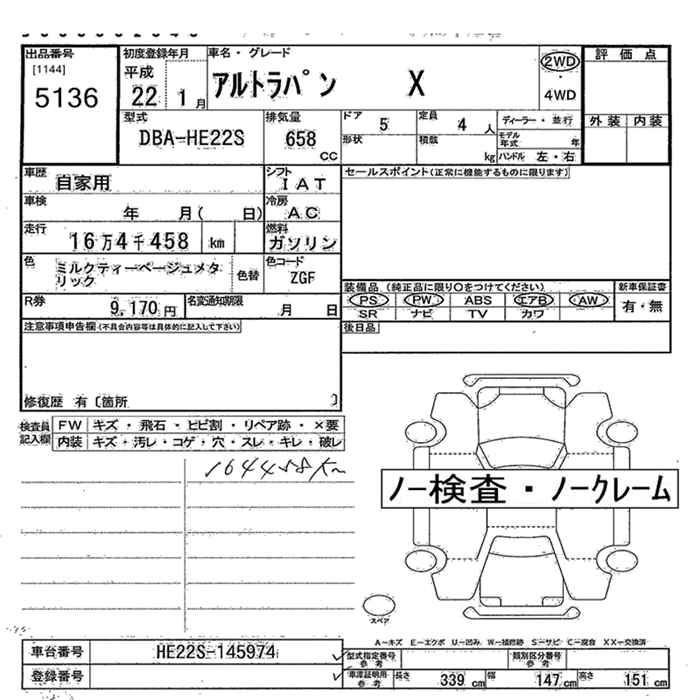 出品番号
[1144]
5136
初度登録年月
平成
22 1 月
車名・グレード
アルトラパン X
2WD
・
4WD
評価点
外装 内装
型式
DBA-HE22S
排気量
658
cc
ドア 5
定員 4 人
形状
積載 kg
ディーラー・並行
モデル年式 年
ハンドル 左・右
車歴 自家用
シフト IAT
車検 年 月( 日)
冷房 AC
走行 16万4千458 km
燃料 ガソリン
色 ミルクティーベージュメタリック
色替
色コード ZGF
R券 9,170 円
名変通知期限 月 日
セールスポイント(正常に機能するものに限ります)
装備品 (純正品に限り○をつけてください)
新車保証書
PS PW ABS エアB AW
SR ナビ TV カワ
有・無
後日品
注意事項申告欄(不具合内容等は具体的に記入して下さい)
修復歴 有〔箇所 〕
検査員記入欄
FW キズ・飛石・ヒビ割・リペア跡・×要
内装 キズ・汚レ・コゲ・穴・スレ・キレ・破レ
164458km
ノー検査・ノークレーム
スペア
A-キズ E-エクボ U-凹み W-補修跡 S-サビ C-腐食 XX-交換済
車台番号 HE22S-145974
登録番号
型式指定番号 参考
類別区分番号 参考
車庫証明用 参考
長さ 339 cm 幅 147 cm 高さ 151 cm